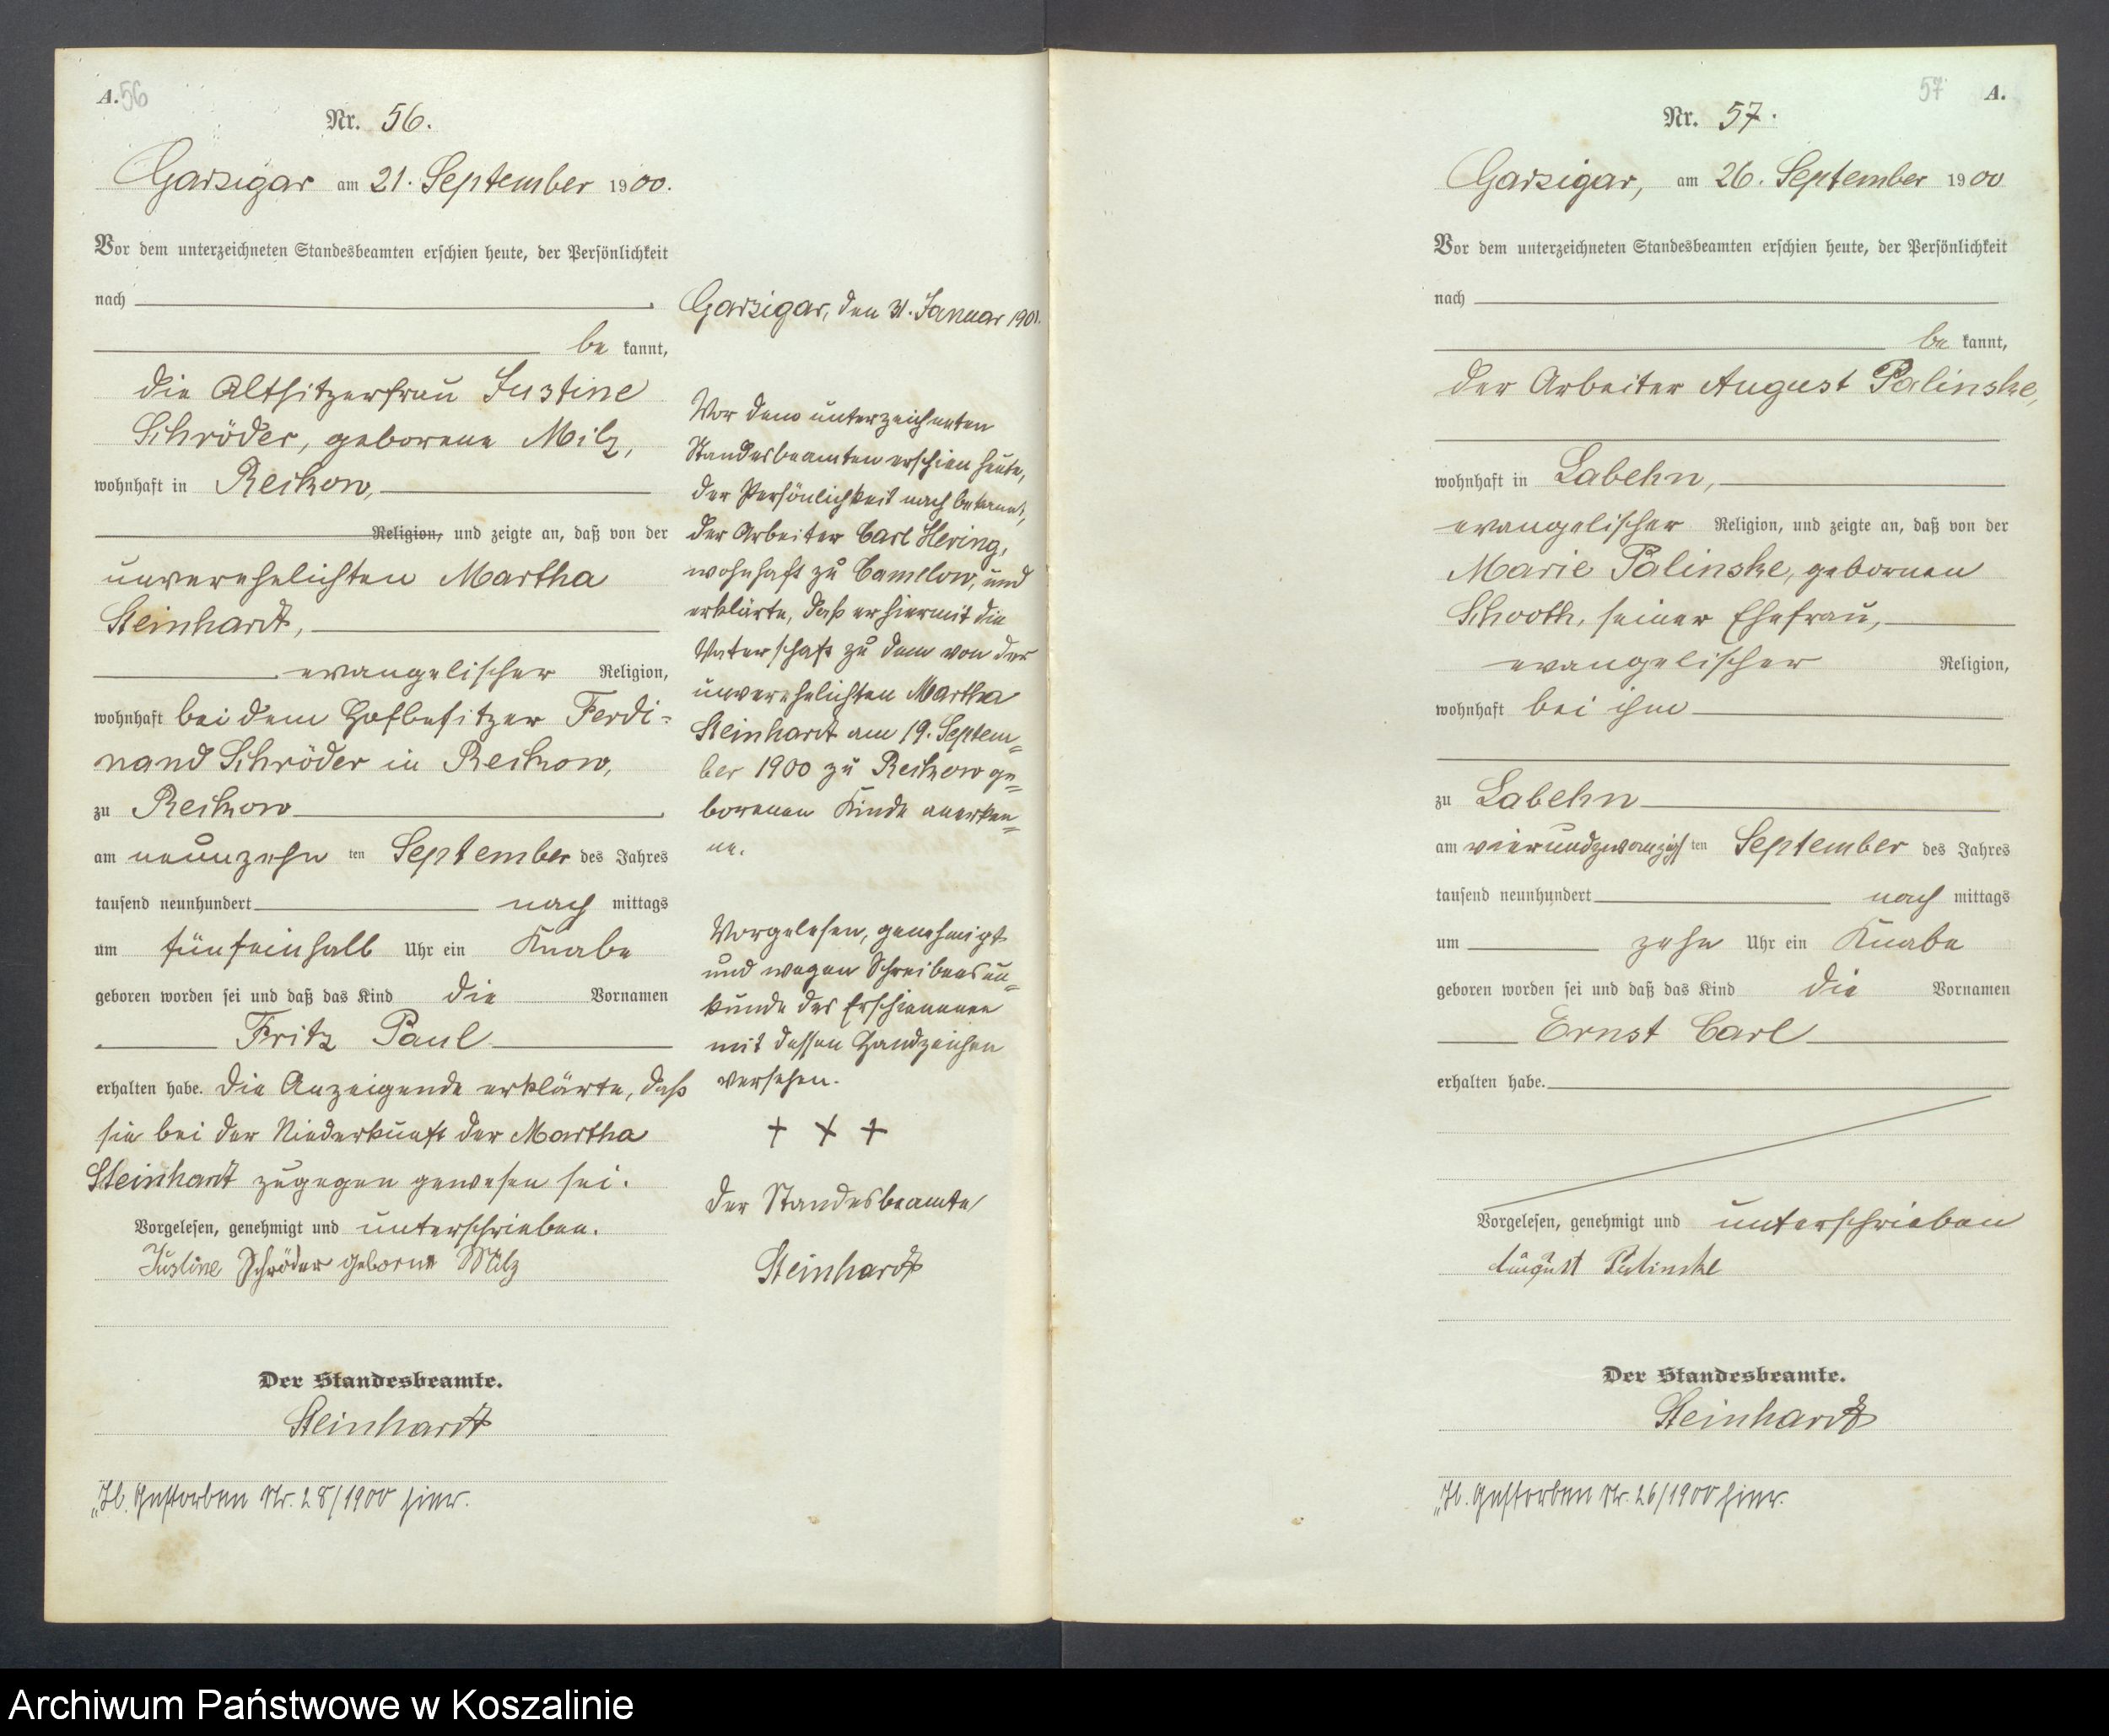 A. 56
Nr. 56.
Garzigar am 21. September 1900.
Vor dem unterzeichneten Standesbeamten erschien heute, der Persönlichkeit
nach
be kannt,
die Altsitzerfrau Justine
Schröder, geborene Milz,
wohnhaft in Reckow,
Religion, und zeigte an, daß von der
unverehelichten Martha
Steinhardt,
evangelischer Religion,
wohnhaft bei dem Hofbesitzer Ferdi-
nand Schröder in Reckow,
zu Reckow
am neunzehn ten September des Jahres
tausend neunhundert nach mittags
um fünfeinhalb Uhr ein Knabe
geboren worden sei und daß das Kind die Vornamen
Fritz Paul
erhalten habe. Die Anzeigende erklärte, daß
sie bei der Niederkunft der Martha
Steinhardt zugegen gewesen sei.
Vorgelesen, genehmigt und unterschrieben.
Justine Schröder geborne Milz
Der Standesbeamte.
Steinhardt
Gestorben Nr. 28/1900 hier.
Garzigar, den 31. Januar 1901.
Vor dem unterzeichneten
Standesbeamten erschien heute,
der Persönlichkeit nach bekannt,
der Arbeiter Carl Hering,
wohnhaft zu Camelow, und
erklärte, daß er hiermit die
Vaterschaft zu dem von der
unverehelichten Martha
Steinhardt am 19. Septem=
ber 1900 zu Reckow ge=
borenen Kinde anerken=
ne.
Vorgelesen, genehmigt
und wegen Schreibensun=
kunde des Erschienenen
mit dessen Handzeichen
versehen.
+ + +
Der Standesbeamte
Steinhardt
57 A.
Nr. 57.
Garzigar, am 26. September 1900
Vor dem unterzeichneten Standesbeamten erschien heute, der Persönlichkeit
nach
be kannt,
der Arbeiter August Palinske,
wohnhaft in Labehn,
evangelischer Religion, und zeigte an, daß von der
Marie Palinske, gebornen
Schooth, seiner Ehefrau,
evangelischer Religion,
wohnhaft bei ihm
zu Labehn
am vierundzwanzigs ten September des Jahres
tausend neunhundert nach mittags
um zehn Uhr ein Knabe
geboren worden sei und daß das Kind die Vornamen
Ernst Carl
erhalten habe.
Vorgelesen, genehmigt und unterschrieben
August Palinske
Der Standesbeamte.
Steinhardt
Gestorben Nr. 26/1900 hier.
Archiwum Państwowe w Koszalinie